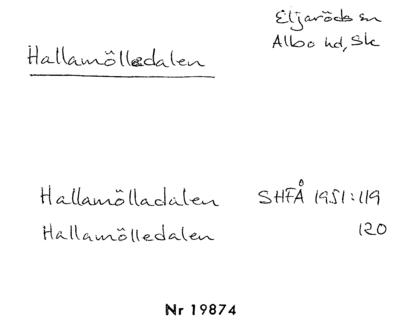 Eljaröds sn
Albo hd, Sk
Hallamölledalen
Hallamölladalen SHFÅ 1951:119
Hallamölledalen 120
Nr 19874